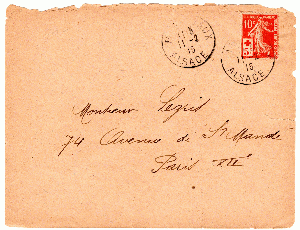 11-2
15
ALSACE
10c
15
ALSACE
Monsieur Legris
74 Avenue de St Mandé
Paris XIIe